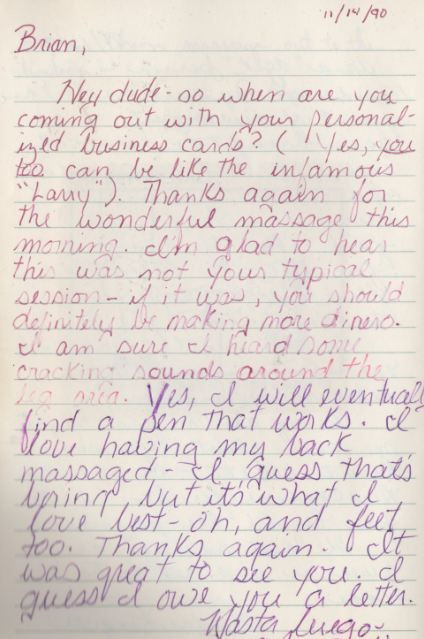 11/14/90
Brian,
Hey dude - so when are you
coming out with your personal-
ized business cards? ( Yes, you
too can be like the infamous
"Larry"). Thanks again for
the wonderful massage this
morning. I'm glad to hear
this was not your typical
session - if it was, you should
definitely be making more dinero.
I am sure I heard some
cracking sounds around the
leg area. Yes, I will eventually
find a pen that works. I
love having my back
massaged - I guess that's
boring, but it's what I
love best - oh, and feet
too. Thanks again. It
was great to see you. I
guess I owe you a letter.
Hasta luego